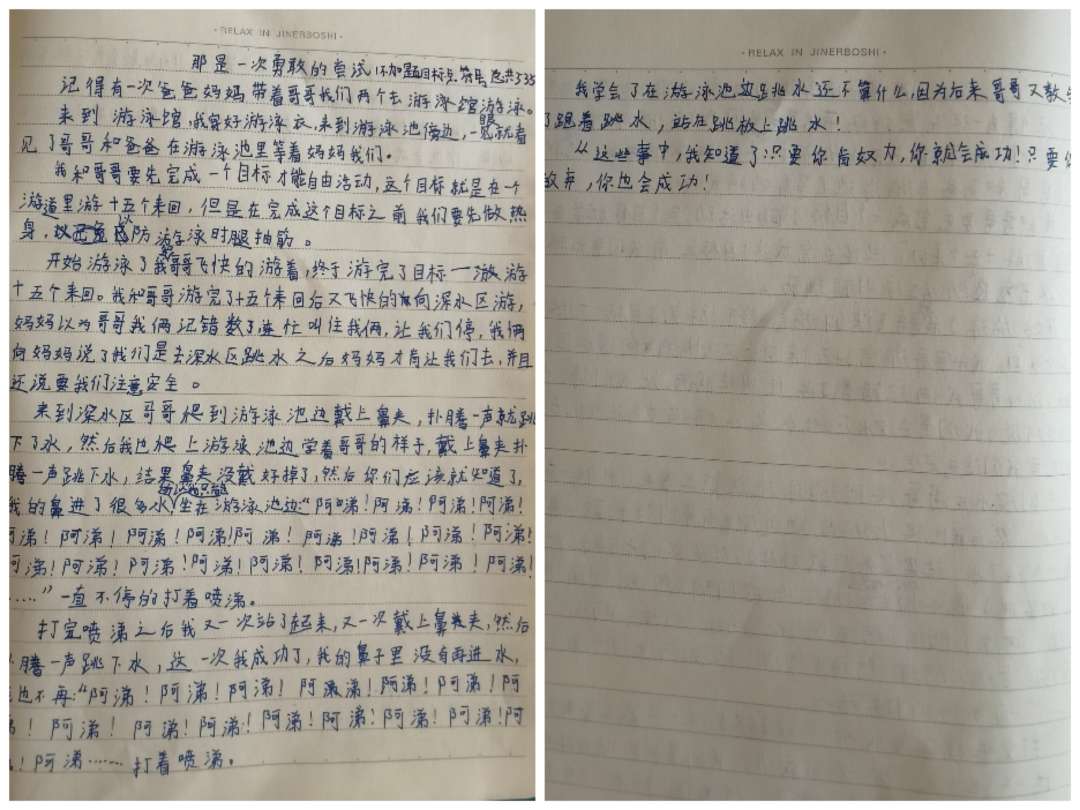 ·RELAX IN JINERBOSHI·
那是一次勇敢的尝试(不加题目标点符号,总共535
记得有一次爸爸妈妈带着哥哥我们两个去游泳馆游泳。
来到游泳馆,我穿好游泳衣,来到游泳池傍边,一眼就看
见了哥哥和爸爸在游泳池里等着妈妈我们。
我和哥哥要先完成一个目标才能自由活动,这个目标就是在一个
游道里游十五个来回,但是在完成这个目标之前我们要先做热
身,以防游泳时腿抽筋。
开始游泳了我和哥哥飞快的游着,终于游完了目标一游
十五个来回。我和哥哥游完了十五个来回后又飞快的向深水区游,
妈妈以为哥哥我俩记错数了连忙叫住我俩,让我们停,我俩
向妈妈说了我们是去深水区跳水之后妈妈才肯让我们去,并且
还说要我们注意安全。
来到深水区哥哥爬到游泳池边戴上鼻夹,扑腾一声就跳
下了水,然后我也爬上游泳池边学着哥哥的样子,戴上鼻夹扑
腾一声跳下水,结果鼻夹没戴好掉了,然后你们应该就知道了,
我的鼻进了很多水,坐在游泳池边:“阿嚏!阿涕!阿涕!阿涕!
阿涕!阿涕!阿涕!阿涕!阿涕!阿涕!阿涕!阿涕!阿涕!
阿涕!阿涕!阿涕!阿涕!阿涕!阿涕!阿涕!阿涕!阿涕!
……”一直不停的打着喷涕。
打完喷涕之后我又一次站了起来,又一次戴上鼻夹,然后
腾一声跳下水,这一次我成功了,我的鼻子里没有再进水,
也不再:“阿涕!阿涕!阿涕!阿涕!阿涕!阿涕!阿
!阿涕!阿涕!阿涕!阿涕!阿涕!阿涕!阿涕!阿
!阿涕……打着喷涕。
·RELAX IN JINERBOSHI·
我学会了在游泳池边跳水还不算什么,因为后来哥哥又教
了跑着跳水,站在跳板上跳水!
从这些事中,我知道了:只要你肯努力,你就会成功!只要
放弃,你也会成功!